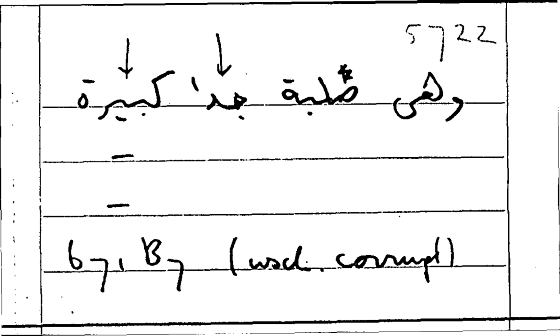 5722
↓ ↓
وهى صلبة جدا كبيرة
–
–
67, B7 (usd. corrupt)